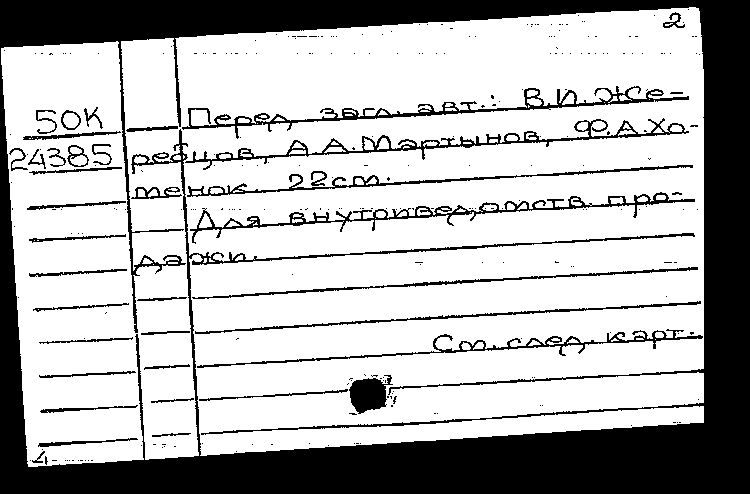 2
50К Перед загл. авт.: В.И.Же-
24385 ребцов, А.А.Мартынов, Ф.А.Хо-
тенок. 22см.
Для внутриведомств. про-
дажи.
См.след. карт.
4